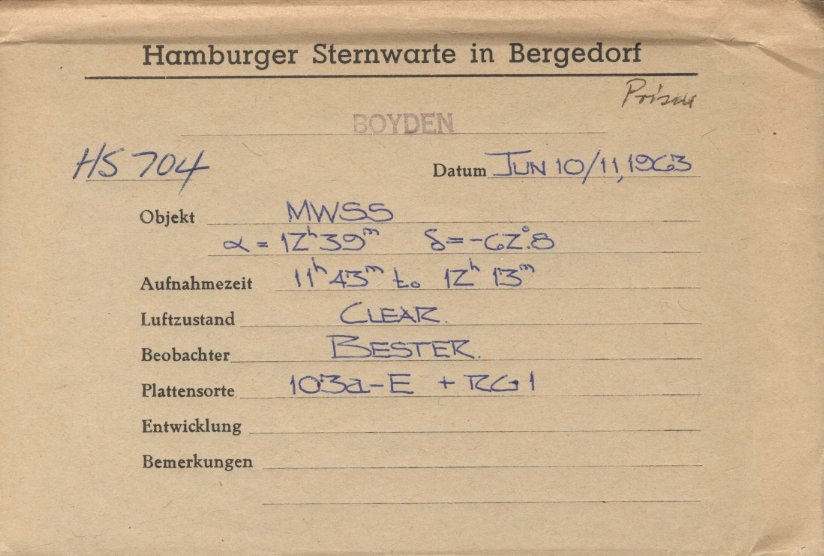 Hamburger Sternwarte in Bergedorf
Prisma
BOYDEN
HS 704 Datum JUN 10/11, 1963
Objekt MWSS
α = 12ʰ39ᵐ δ = -62°.8
Aufnahmezeit 11ʰ 43ᵐ to 12ʰ 13ᵐ
Luftzustand CLEAR.
Beobachter BESTER.
Plattensorte 103a-E + RG1
Entwicklung
Bemerkungen